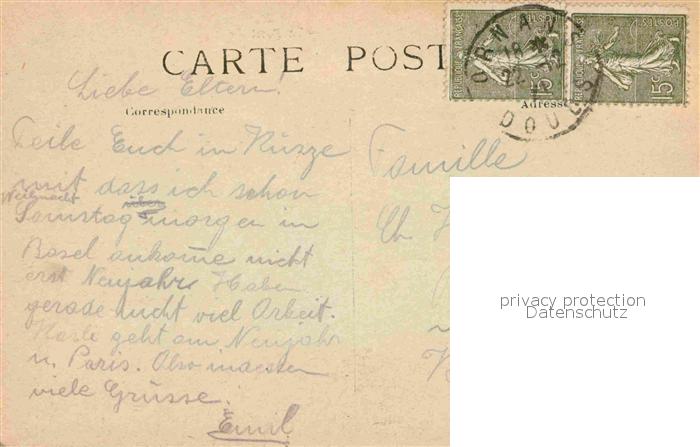 CARTE POST
REPUBLIQUE FRANÇAISE
POSTES
15c
REPUBLIQUE FRANÇAISE
POSTES
15c
ORNAN
DOUBS
Liebe Eltern!
Correspondance
Adresse
Teile Euch in Kürze
mit dass ich schon
Weihnacht
Samstag morgen in
Basel ankome nicht
erst Neujahr. Haben
gerade nicht viel Arbeit.
geht am Neujahr
n. Paris. Also indessen
viele Grüsse.
Emil
Famille
Ch
privacy protection
Datenschutz